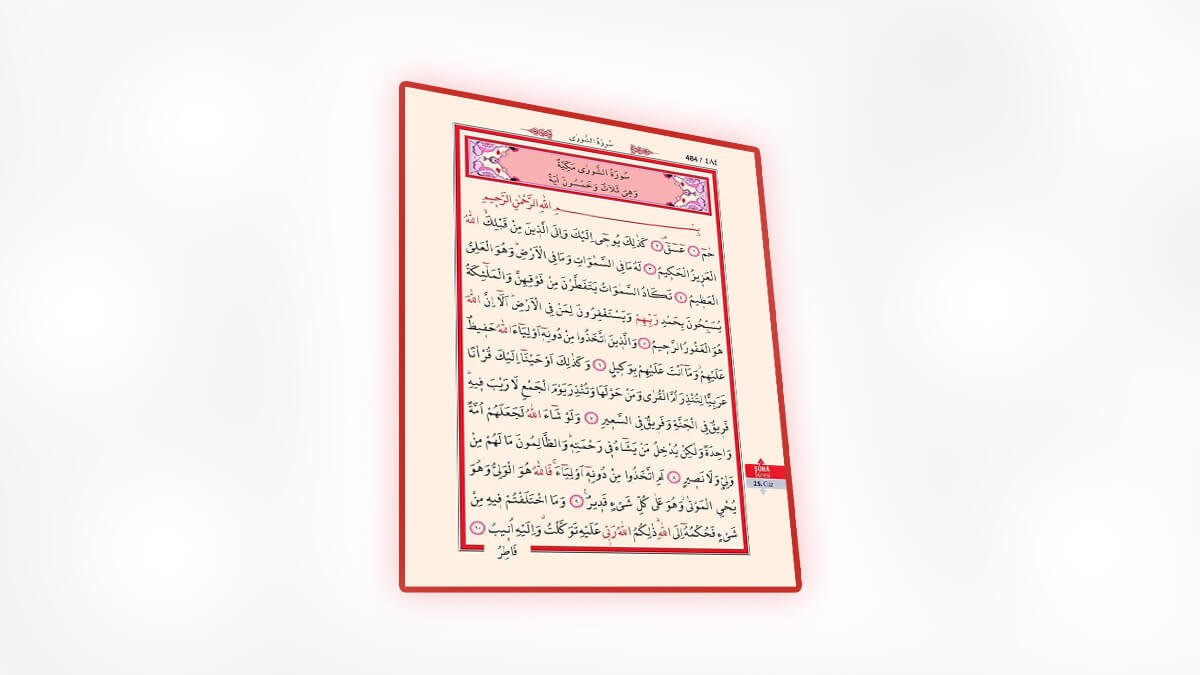 سُورَةُ الشُّورٰى
484 / ٤٨٤
سُورَةُ الشُّورٰى مَكِّيَّةٌ
وَهِيَ ثَلَاثٌ وَخَمْسُونَ اٰيَةً
بِسْمِ اللّٰهِ الرَّحْمٰنِ الرَّحٖيمِ
حٰمٓ ﴿١﴾ عٓسٓقٓ ﴿٢﴾ كَذٰلِكَ يُوحٖٓى اِلَيْكَ وَاِلَى الَّذٖينَ مِنْ قَبْلِكَۙ اللّٰهُ
الْعَزٖيزُ الْحَكٖيمُ ﴿٣﴾ لَهُ مَا فِي السَّمٰوَاتِ وَمَا فِي الْاَرْضِؕ وَهُوَ الْعَلِيُّ
الْعَظٖيمُ ﴿٤﴾ تَكَادُ السَّمٰوَاتُ يَتَفَطَّرْنَ مِنْ فَوْقِهِنَّ وَالْمَلٰٓئِكَةُ
يُسَبِّحُونَ بِحَمْدِ رَبِّهِمْ وَيَسْتَغْفِرُونَ لِمَنْ فِي الْاَرْضِؕ اَلَٓا اِنَّ اللّٰهَ
هُوَ الْغَفُورُ الرَّحٖيمُ ﴿٥﴾ وَالَّذٖينَ اتَّخَذُوا مِنْ دُونِهٖٓ اَوْلِيَٓاءَ اللّٰهُ حَفٖيظٌ
عَلَيْهِمْؗ وَمَٓا اَنْتَ عَلَيْهِمْ بِوَكٖيلٍ ﴿٦﴾ وَكَذٰلِكَ اَوْحَيْنَٓا اِلَيْكَ قُرْاٰنًا
عَرَبِيًّا لِتُنْذِرَ اُمَّ الْقُرٰى وَمَنْ حَوْلَهَا وَتُنْذِرَ يَوْمَ الْجَمْعِ لَا رَيْبَ فٖيهِؕ
فَرٖيقٌ فِي الْجَنَّةِ وَفَرٖيقٌ فِي السَّعٖيرِ ﴿٧﴾ وَلَوْ شَٓاءَ اللّٰهُ لَجَعَلَهُمْ اُمَّةً
وَاحِدَةً وَلٰكِنْ يُدْخِلُ مَنْ يَشَٓاءُ فٖي رَحْمَتِهٖؕ وَالظَّالِمُونَ مَا لَهُمْ مِنْ
وَلِيٍّ وَلَا نَصٖيرٍ ﴿٨﴾ اَمِ اتَّخَذُوا مِنْ دُونِهٖٓ اَوْلِيَٓاءَۚ فَاللّٰهُ هُوَ الْوَلِيُّ وَهُوَ
يُحْيِ الْمَوْتٰىؗ وَهُوَ عَلٰى كُلِّ شَيْءٍ قَدٖيرٌ ﴿٩﴾ وَمَا اخْتَلَفْتُمْ فٖيهِ مِنْ
شَيْءٍ فَحُكْمُهُٓ اِلَى اللّٰهِؕ ذٰلِكُمُ اللّٰهُ رَبّٖي عَلَيْهِ تَوَكَّلْتُۗ وَاِلَيْهِ اُنٖيبُ ﴿١٠﴾
فَاطِرُ
ŞÛRÂ
25. Cüz